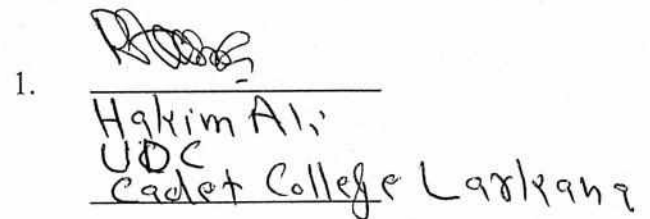 1.
Hakim Ali
UDC
Cadet College Larkana